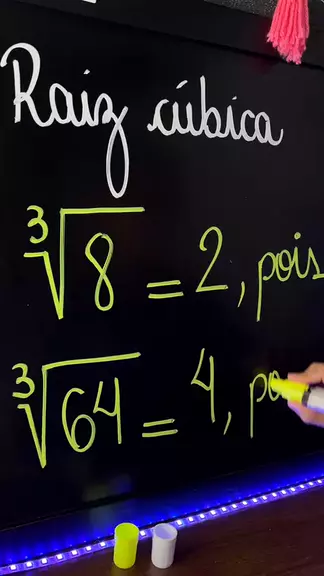 Raiz cúbica
∛8 = 2, pois
∛64 = 4, po